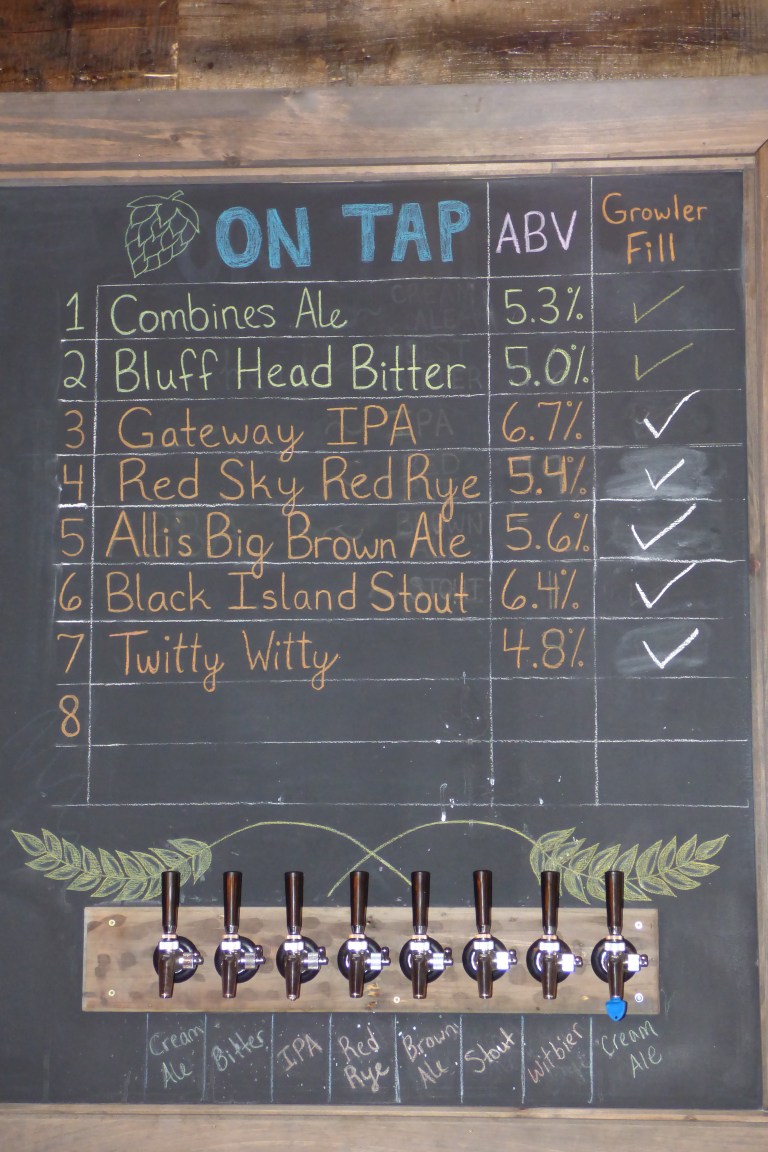 ON TAP ABV Growler Fill
1 Combines Ale 5.3%
2 Bluff Head Bitter 5.0%
3 Gateway IPA 6.7%
4 Red Sky Red Rye 5.4%
5 Allis Big Brown Ale 5.6%
6 Black Island Stout 6.4%
7 Twitty Witty 4.8%
8
Cream Ale Bitter IPA Red Rye Brown Ale Stout Witbier Cream Ale